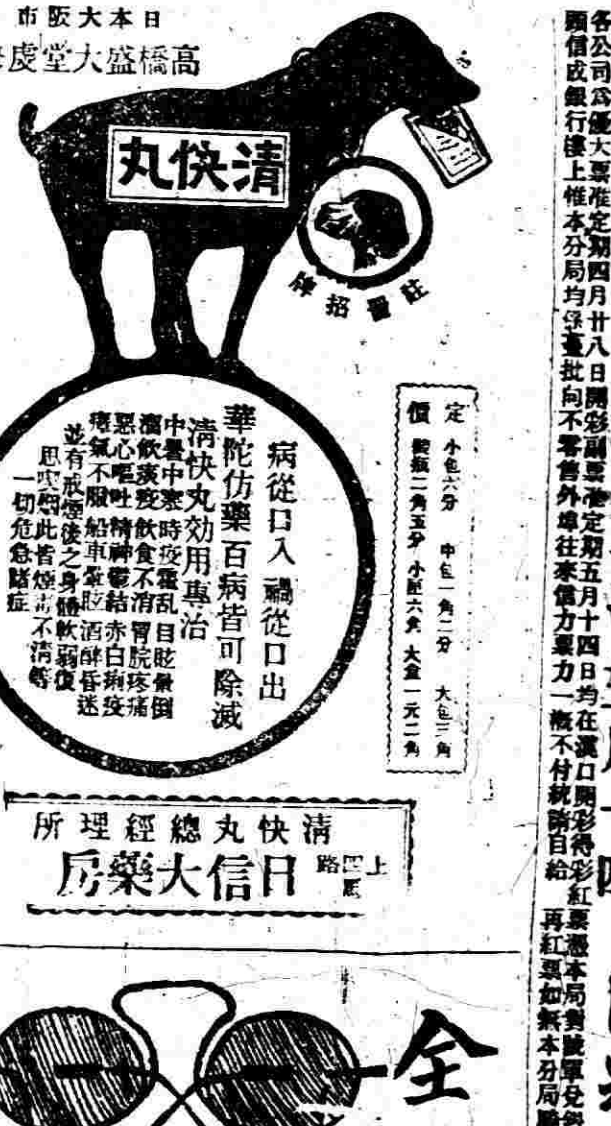 日本大阪市
高橋盛大堂虔
清快丸
註冊招牌
定價
小包六分 中包一角二分 大包三角
裝瓶二角五分 小匣六角 大盒一元二角
病從口入 禍從口出
華陀仿藥百病皆可除滅
清快丸効用專治
中暑中寒時疫霍乱目眩暈倒
溜飲痰疫飲食不消胃脘疼痛
惡心嘔吐精神鬱結赤白痢疫
瘴氣不服船車暈眩酒醉昏迷
並有戒煙後之身體軟弱復
思吃烟此皆煙毒不清等
一切危急諸症
清快丸總經理所
上 四馬路
日信大藥房
各公司為優大票准定期四月廿八日開彩副票准定期五月十四日均在漢口開彩得彩紅票憑本局對號單兌
顧信成銀行樓上惟本分局均係躉批向不零售外埠往來信力票力一概不付統請自給 再紅票如無本分局
全